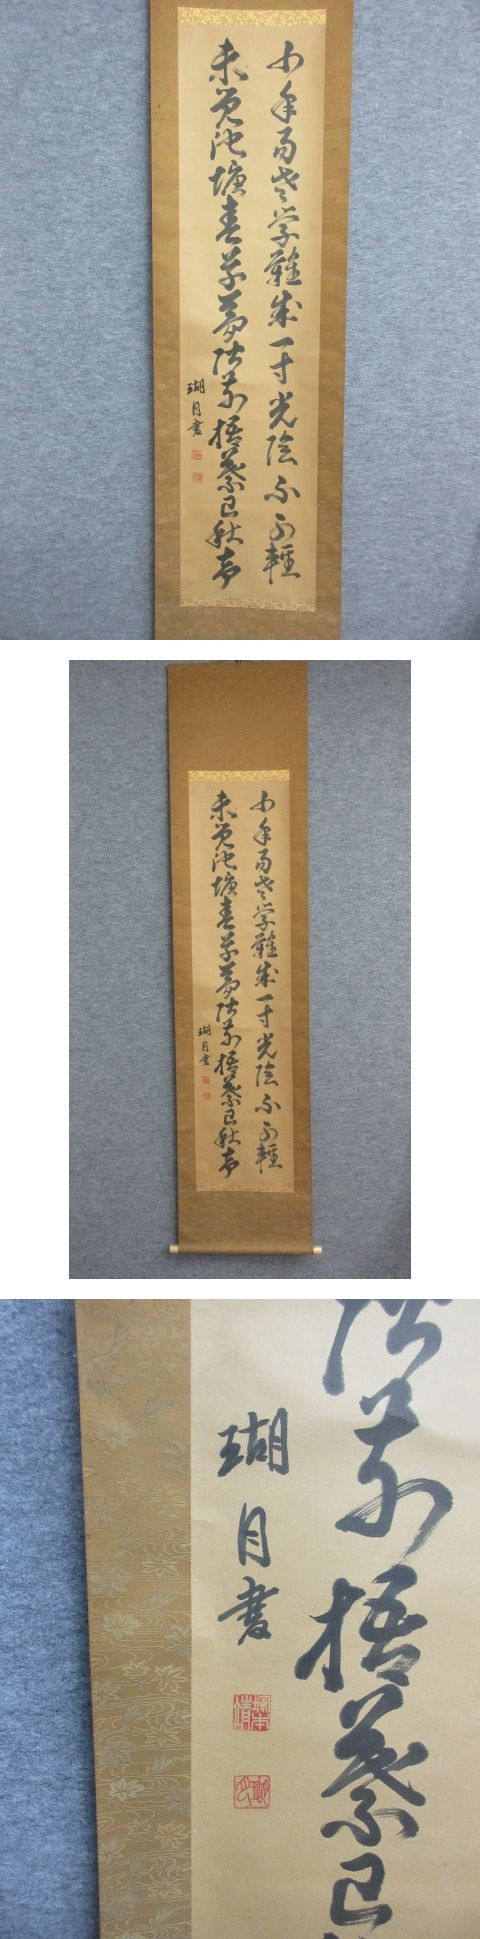 少年易老学難成一寸光陰不可輕
未覚池塘春草夢階前梧葉已秋声
瑚月書
少年易老学難成一寸光陰不可輕
未覚池塘春草夢階前梧葉已秋声
瑚月書
階前梧葉已
瑚月書